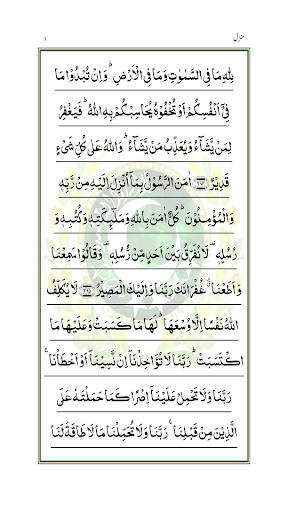 منزل
۱
لِلّٰهِ مَا فِی السَّمٰوٰتِ وَمَا فِی الْاَرْضِ ؕ وَاِنْ تُبْدُوْا مَا
فِیْۤ اَنْفُسِكُمْ اَوْ تُخْفُوْهُ یُحَاسِبْكُمْ بِهِ اللّٰهُ ؕ فَیَغْفِرُ
لِمَنْ یَّشَآءُ وَیُعَذِّبُ مَنْ یَّشَآءُ ؕ وَاللّٰهُ عَلٰی كُلِّ شَیْءٍ
قَدِیْرٌ ﴿۲۸۴﴾ اٰمَنَ الرَّسُوْلُ بِمَاۤ اُنْزِلَ اِلَیْهِ مِنْ رَّبِّهٖ
وَالْمُؤْمِنُوْنَ ؕ كُلٌّ اٰمَنَ بِاللّٰهِ وَمَلٰٓئِكَتِهٖ وَكُتُبِهٖ وَ
رُسُلِهٖ ۟ لَا نُفَرِّقُ بَیْنَ اَحَدٍ مِّنْ رُّسُلِهٖ ۟ وَقَالُوْا سَمِعْنَا
وَاَطَعْنَا ٭۫ غُفْرَانَكَ رَبَّنَا وَاِلَیْكَ الْمَصِیْرُ ﴿۲۸۵﴾ لَا یُكَلِّفُ
اللّٰهُ نَفْسًا اِلَّا وُسْعَهَا ؕ لَهَا مَا كَسَبَتْ وَعَلَیْهَا مَا
اكْتَسَبَتْ ؕ رَبَّنَا لَا تُؤَاخِذْنَاۤ اِنْ نَّسِیْنَاۤ اَوْ اَخْطَاْنَا ۚ
رَبَّنَا وَلَا تَحْمِلْ عَلَیْنَاۤ اِصْرًا كَمَا حَمَلْتَهٗ عَلَی
الَّذِیْنَ مِنْ قَبْلِنَا ۚ رَبَّنَا وَلَا تُحَمِّلْنَا مَا لَا طَاقَةَ لَنَا